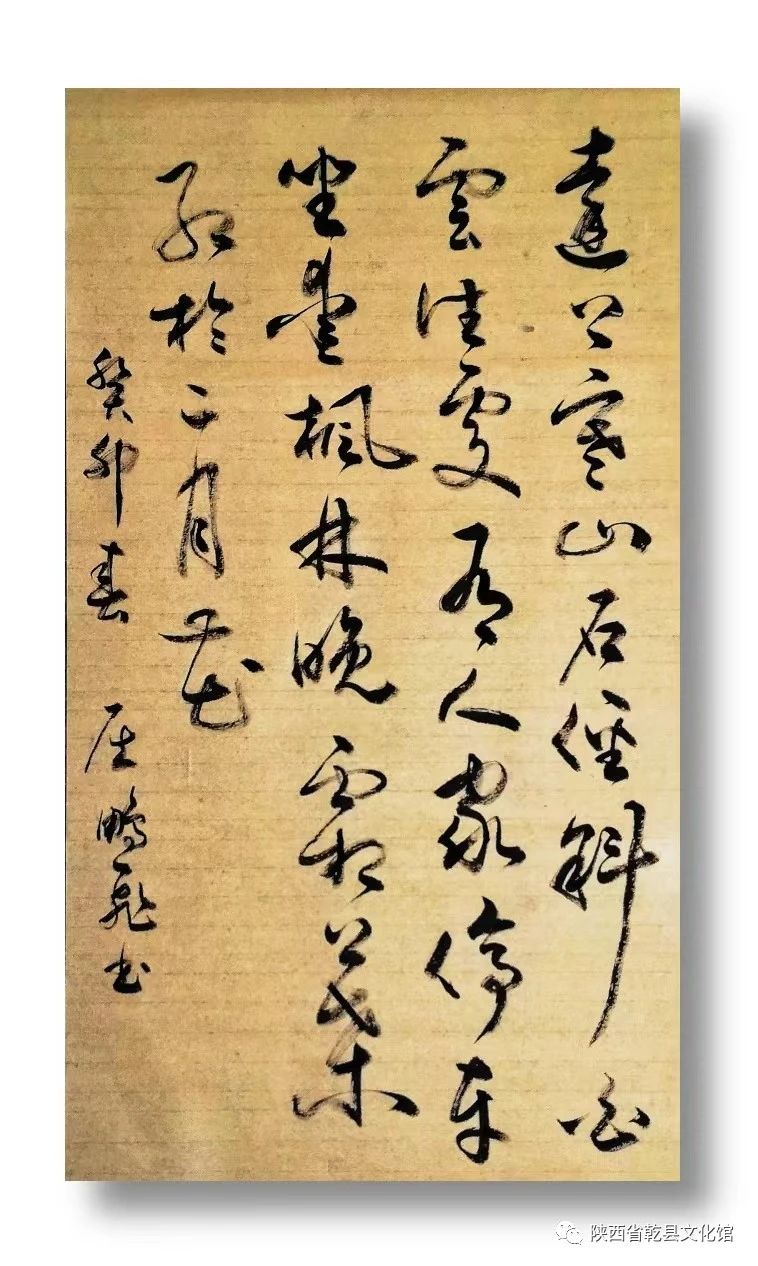 遠上寒山石徑斜白
雲生處有人家停車
坐愛楓林晚霜葉
紅於二月花
癸卯春 鵬飛书
陕西省乾县文化馆